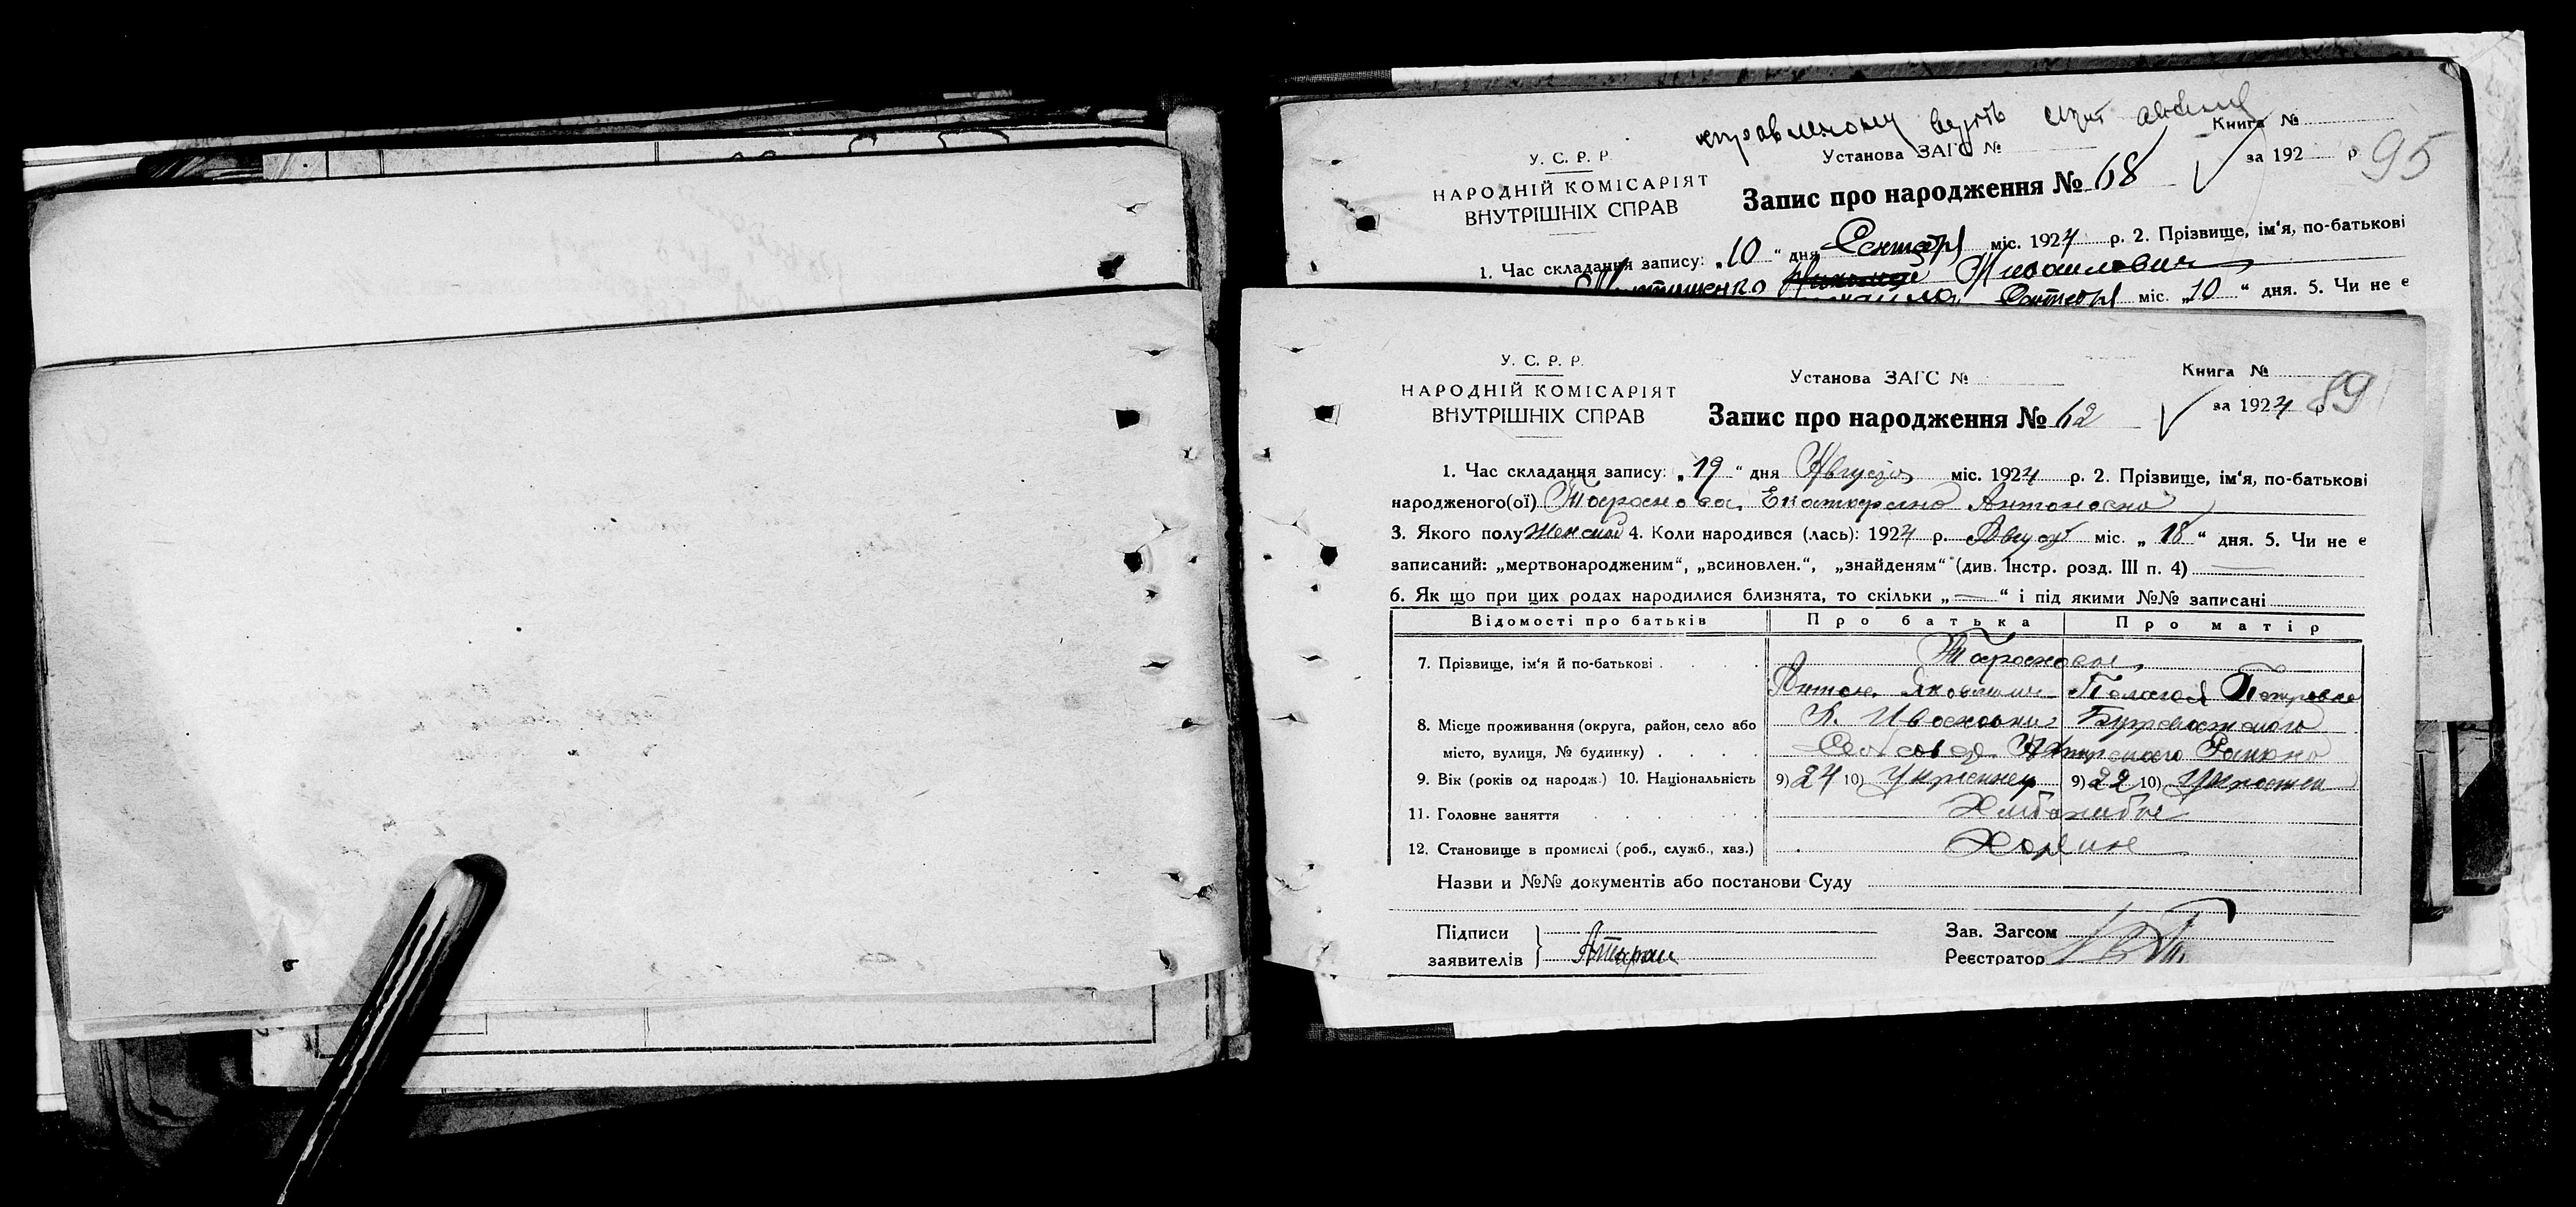 Книга №
У. С. Р. Р.
Установа ЗАГС №
за 192 р. 95
НАРОДНІЙ КОМІСАРІЯТ
ВНУТРІШНІХ СПРАВ
Запис про народження № 68
1. Час складання запису: „10“ дня Сентября міс. 1924 р. 2. Прізвище, ім‘я, по-батькові
Михайлович
міс. „10“ дня. 5. Чи не є
У. С. Р. Р.
Установа ЗАГС №
Книга №
НАРОДНІЙ КОМІСАРІЯТ
ВНУТРІШНІХ СПРАВ
Запис про народження № 62
за 1924 р. 89
1. Час складання запису: „19“ дня Августа міс. 1924 р. 2. Прізвище, ім‘я, по-батькові
народженого(ої) Тарановa Екатерина Антоновна
3. Якого полу Женскаго 4. Коли народився (лась): 1924 р. Август міс. „18“ дня. 5. Чи не є
записаний: „мертвонародженим“, „всиновлен.“, „знайденям“ (див. Інстр. розд. III п. 4) —
6. Як що при цих родах народилися близнята, то скільки „—“ і під якими №№ записані
Відомості про батьків Про батька Про матір
7. Прізвище, ім‘я й по-батькові Тарановы
Антон Яковлевич Пелагея Петровна
8. Місце проживання (округа, район, село або Х. Ивановка
місто, вулиця, № будинку) Сельсовет Района
9. Вік (років од народж.) 10. Національність 9) 24 10) Украинец 9) 22 10) Украинка
11. Головне заняття
12. Становище в промислі (роб., служб., хаз.) Хозяин
Назви и №№ документів або постанови Суду
Підписи
заявителів
Зав. Загсом
Реєстратор